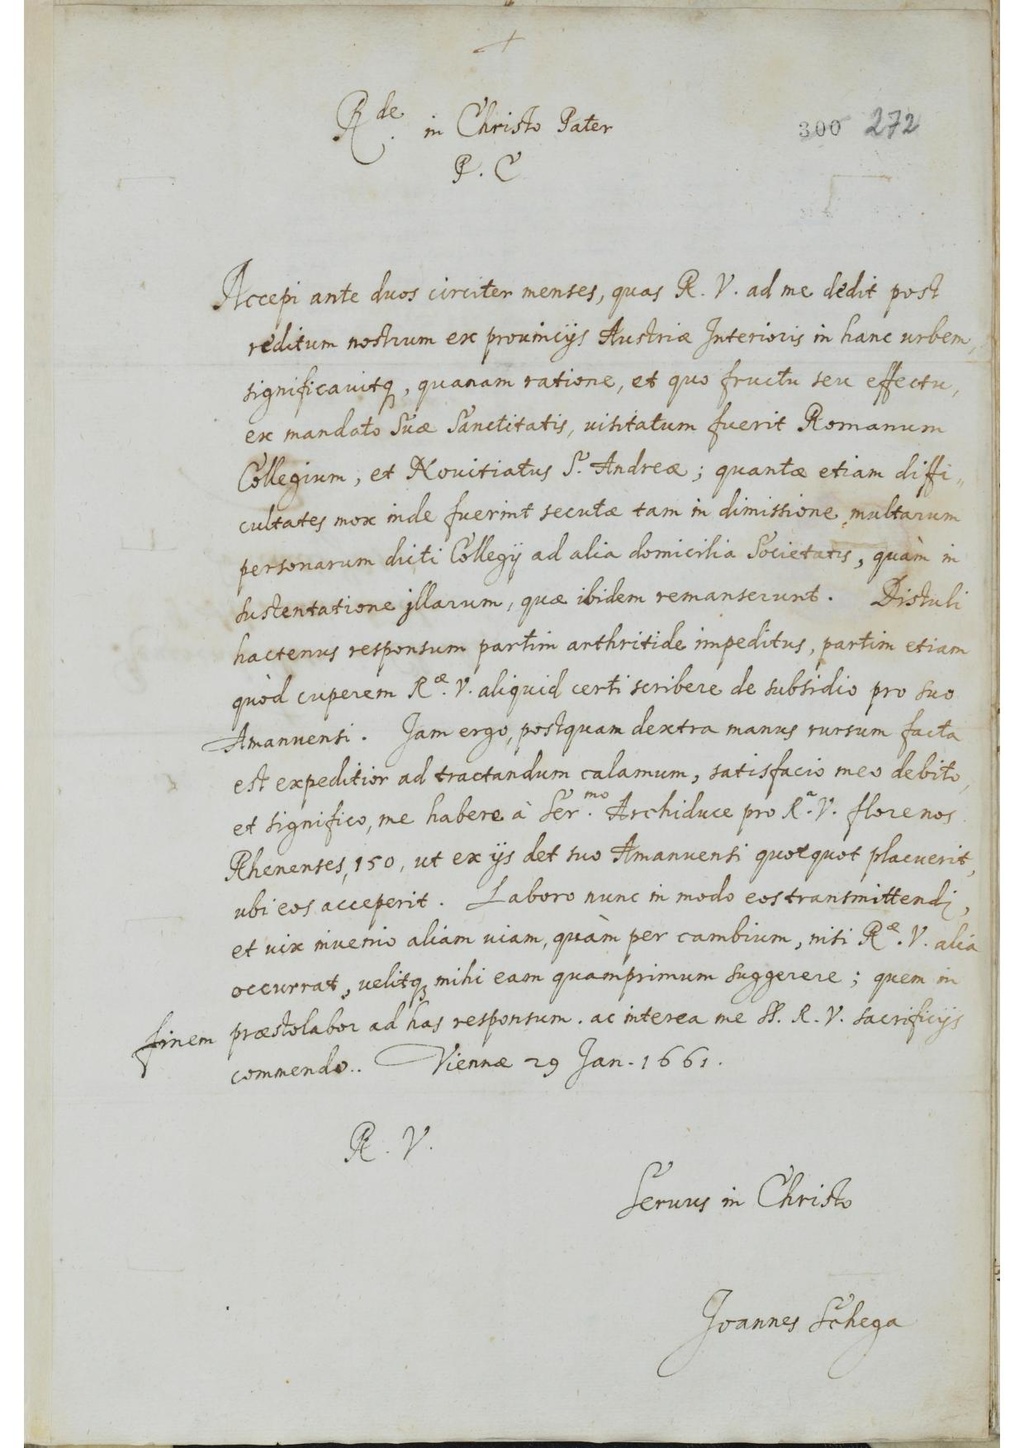 +
Rde. in Christo Pater
300 272
P. C
Accepi ante duos circiter menses, quas R. V. ad me dedit post
reditum nostrum ex prouincijs Austriæ Interioris in hanc urbem,
significauitq, quanam ratione, et quo fructu seu effectu,
ex mandato Suæ Sanctitatis, uisitatum fuerit Romanum
Collegium, et Nouitiatus S. Andreæ; quantæ etiam diffi„
cultates mox inde fuerint secutæ tam in dimissione multarum
personarum dicti Collegij ad alia domicilia Societatis, quàm in
sustentatione jllarum, quæ ibidem remanserunt. Distuli
hactenus responsum partim arthritide impeditus, partim etiam
quòd cuperem Ræ. V. aliquid certi scribere de subsidio pro suo
Amanuensi. Jam ergo, postquam dextra manus rursum facta
est expeditior ad tractandum calamum, satisfacio meo debito,
et significo, me habere à Ser.mo Archiduce pro Ra. V. florenos
Rhenenses, 150, ut ex ijs det suo Amanuensi quotquot placuerit,
ubi eos acceperit. Laboro nunc in modo eos transmittendj,
et uix inuenio aliam uiam, quàm per cambium, nisi Ræ. V. alia
occurrat, uelitq mihi eam quamprimum suggerere; quem in
finem præstolabor ad has responsum. ac interea me SS. R. V. sacrificijs
commendo.. Viennæ 29 Jan. 1661.
R. V.
Seruus in Christo
Joannes Schega